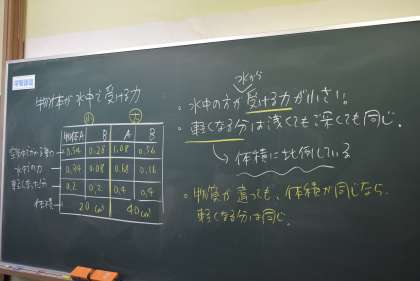 学習課題
物体が水中で受ける力
小 大
物体A B A B
空気中での重さ 0.54 0.28 1.08 0.56
水中での力 0.34 0.08 0.68 0.16
軽くなった分 0.2 0.2 0.4 0.4
体積 20cm³ 40cm³
水から
・水中の方が受ける力が小さい。
・軽くなる分は浅くても深くても同じ。
→体積に比例している
・物質が違っても、体積が同じなら、
軽くなる分は同じ。